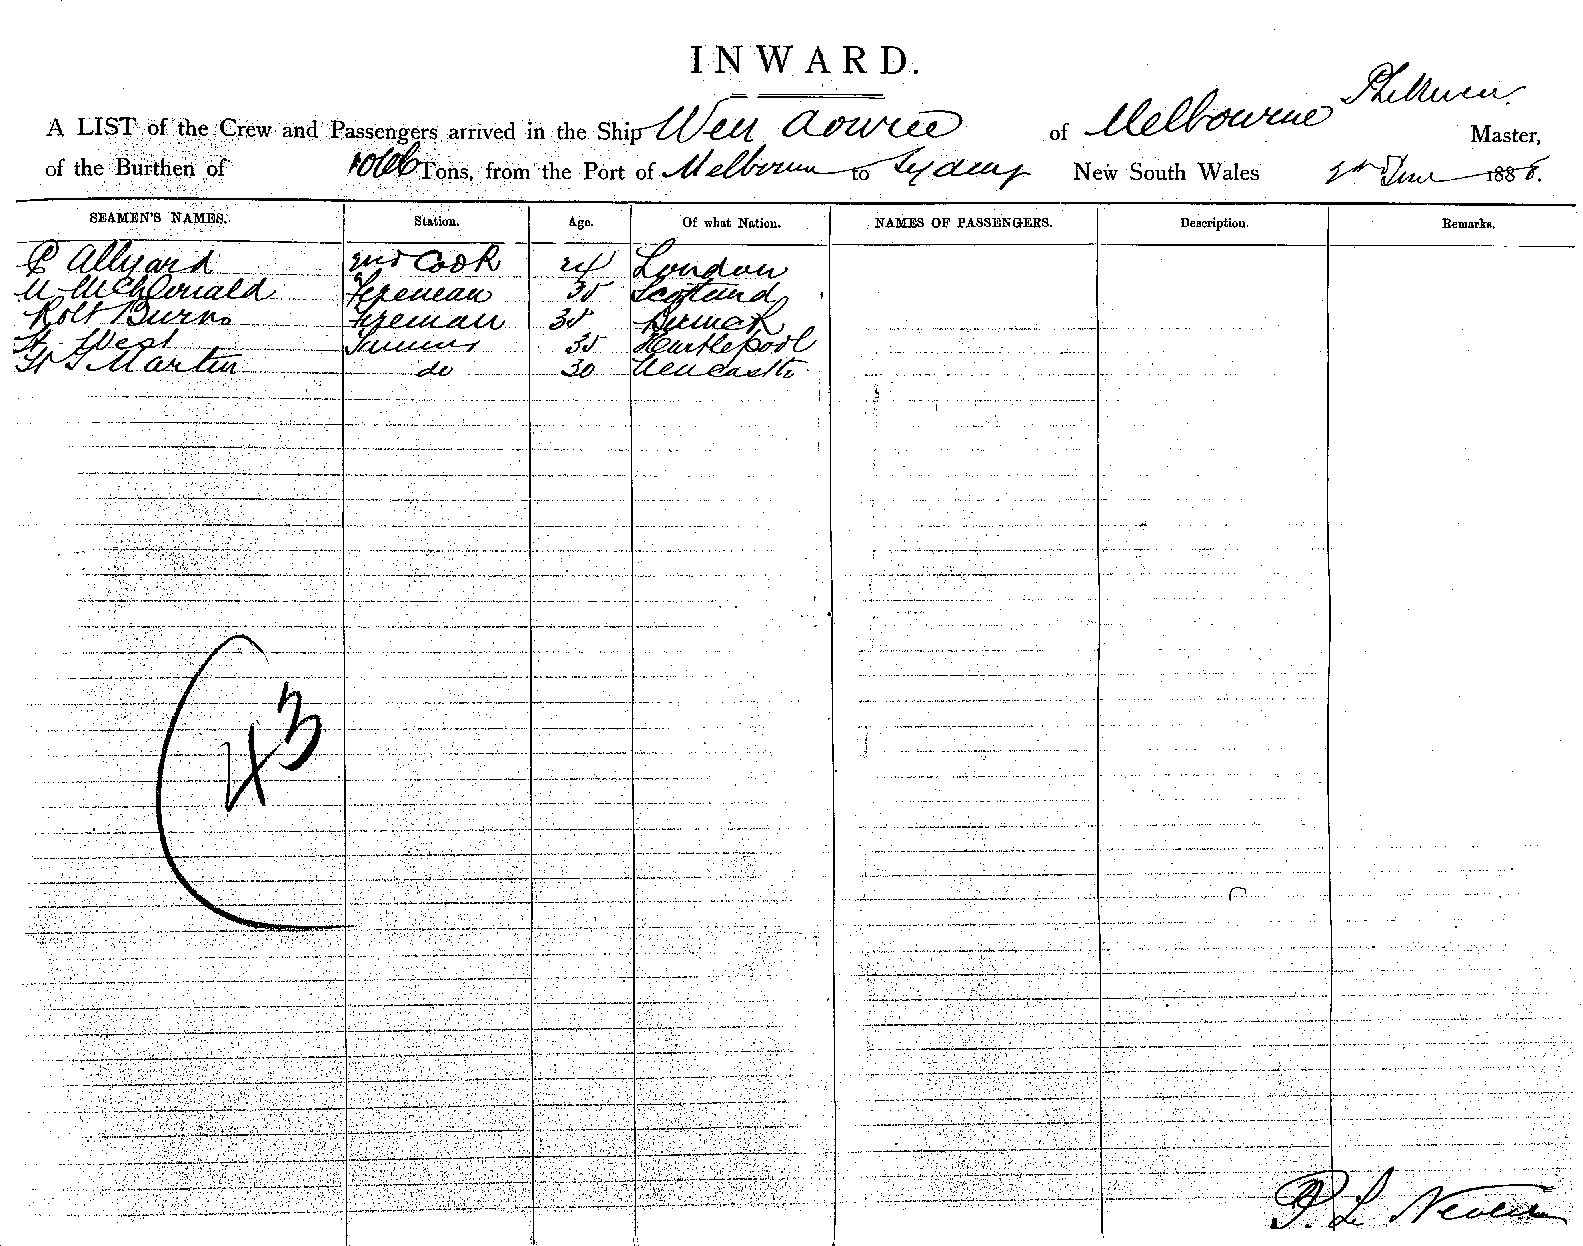 INWARD.
A LIST of the Crew and Passengers arrived in the Ship of Melbourne Master,
of the Burthen of Tons, from the Port of Melbourn to Sydney New South Wales June 1888.
SEAMEN'S NAMES. Station. Age. Of what Nation. NAMES OF PASSENGERS. Description. Remarks.
P Allyard 2nd Cook 24 London
McDonald Fireman 35 Scotland
Robt Burns Fireman 35
West 35 Hartlepool
Martin do 30 Newcastle
43
P. L.